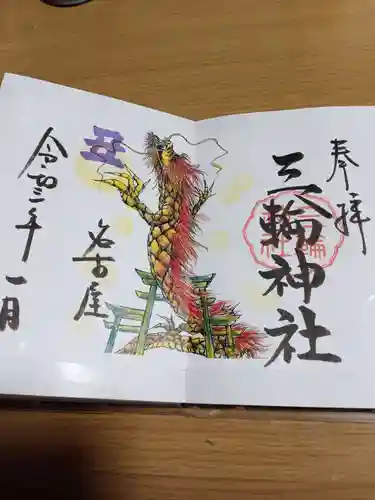 奉拝
三輪神社
三輪
神社
名古屋
令和二年
一月